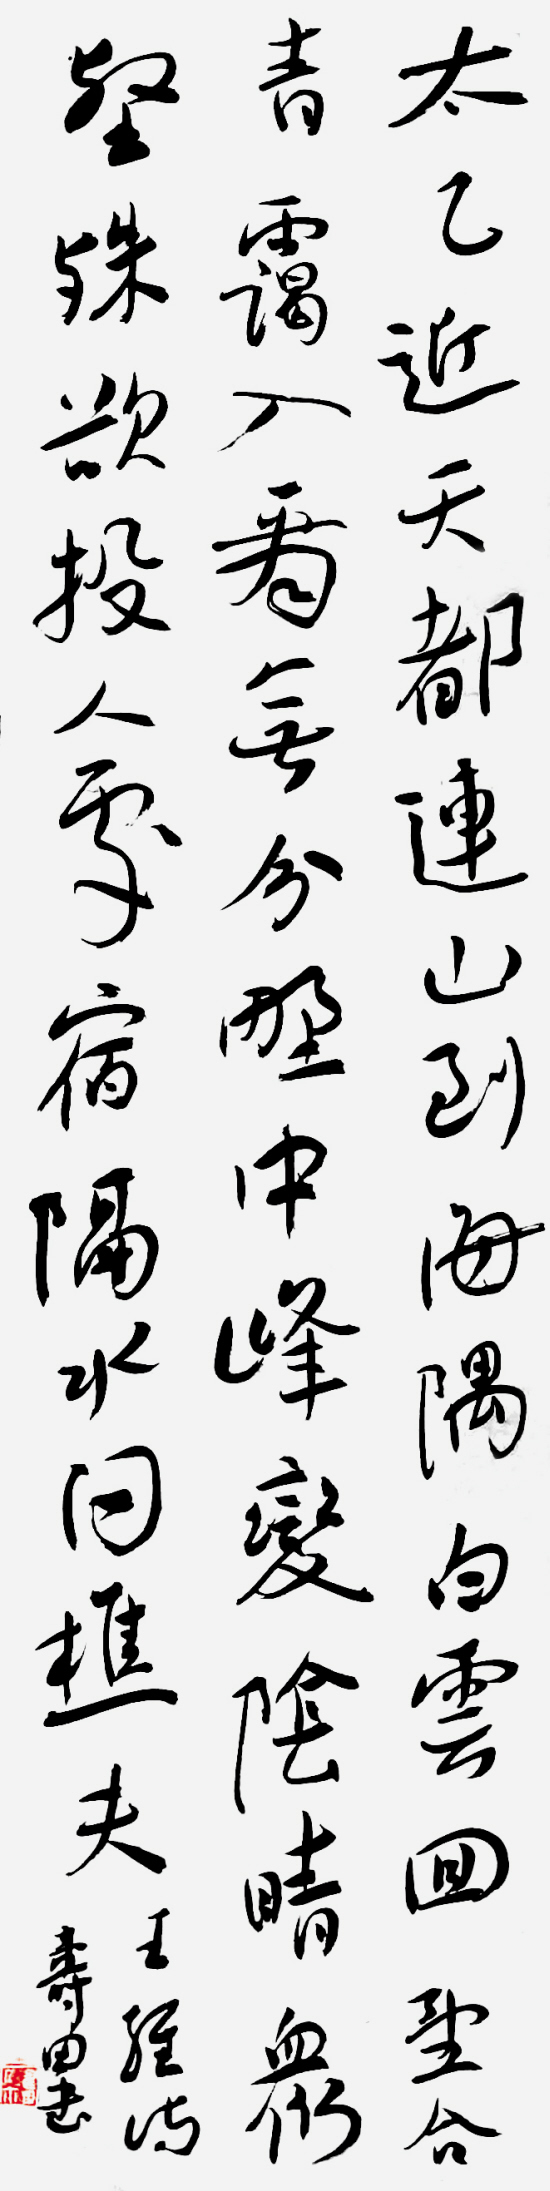 太乙近天都連山到海隅白雲回望合
青靄入看無分野中峰變陰晴衆
壑殊欲投人處宿隔水問樵夫
王維詩
壽田書